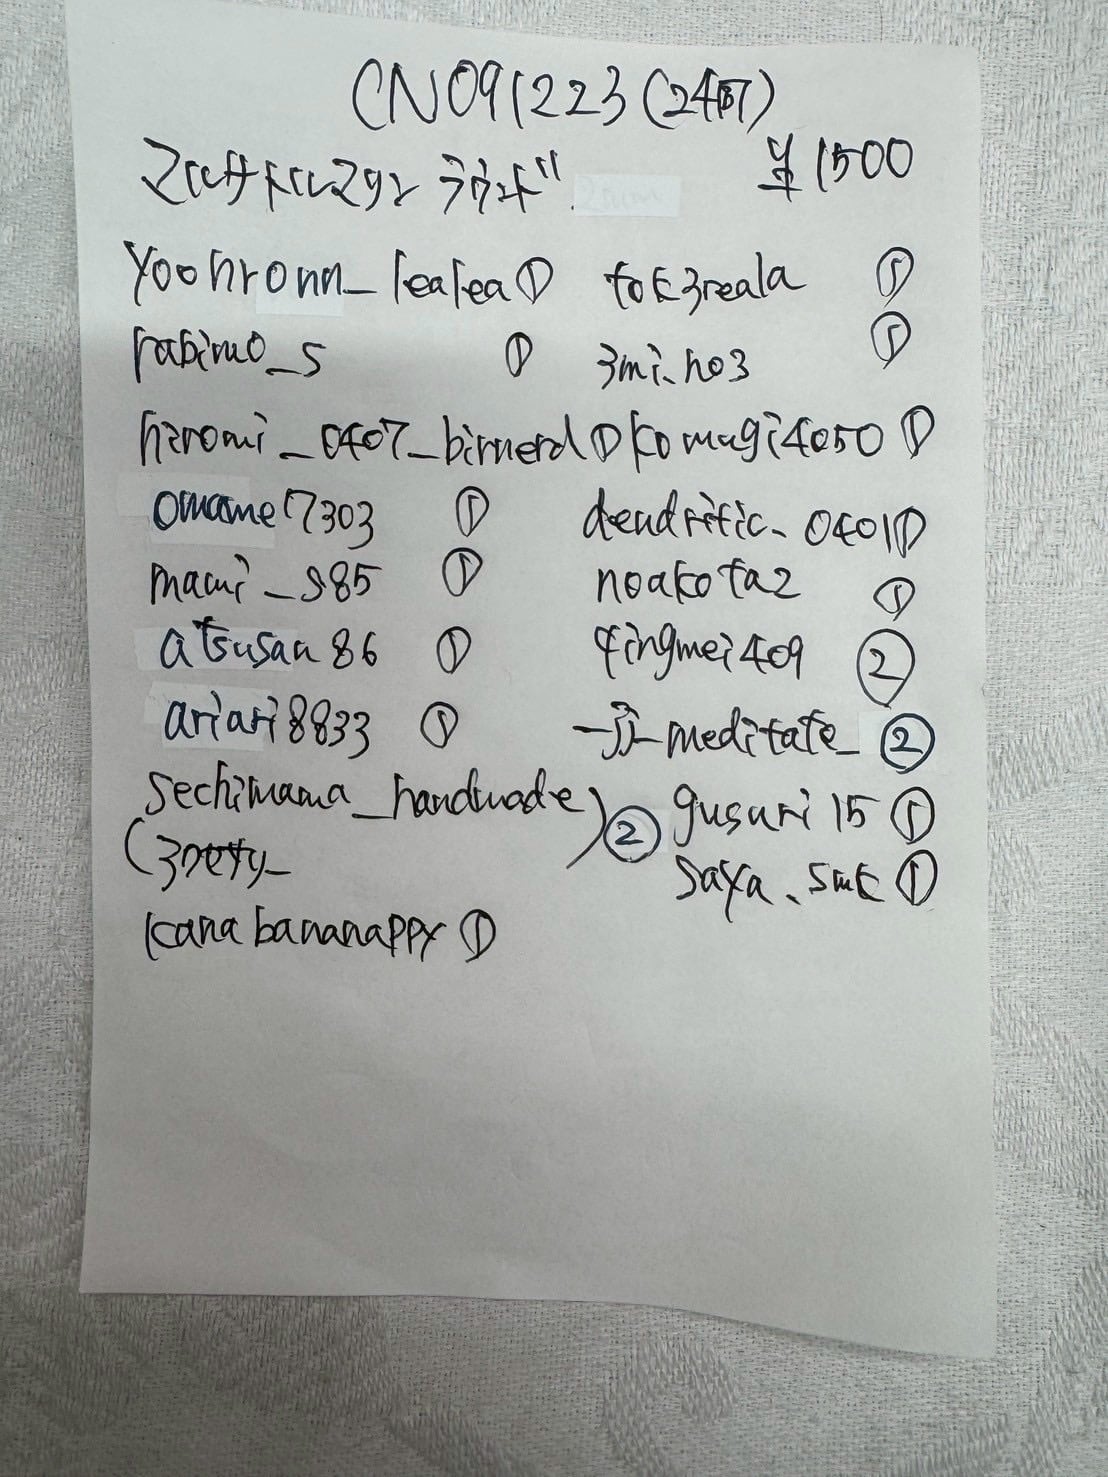 CN091223(24個)
マルチトルマリン ラウンド ¥1500
yoohronn_lealea① tok3reala ①
rabimo_s ① 3mi.no3 ①
hiromi_0407_birnerd① komugi4050①
omame17303 ① dendritic_0401①
mami_s85 ① noakota2 ①
atsusan86 ① qingmei409 ②
ariari8833 ① _jj_meditate_ ②
sechimama_handmade ② gusuri15 ①
saya.smk ①
kanabananappy ①